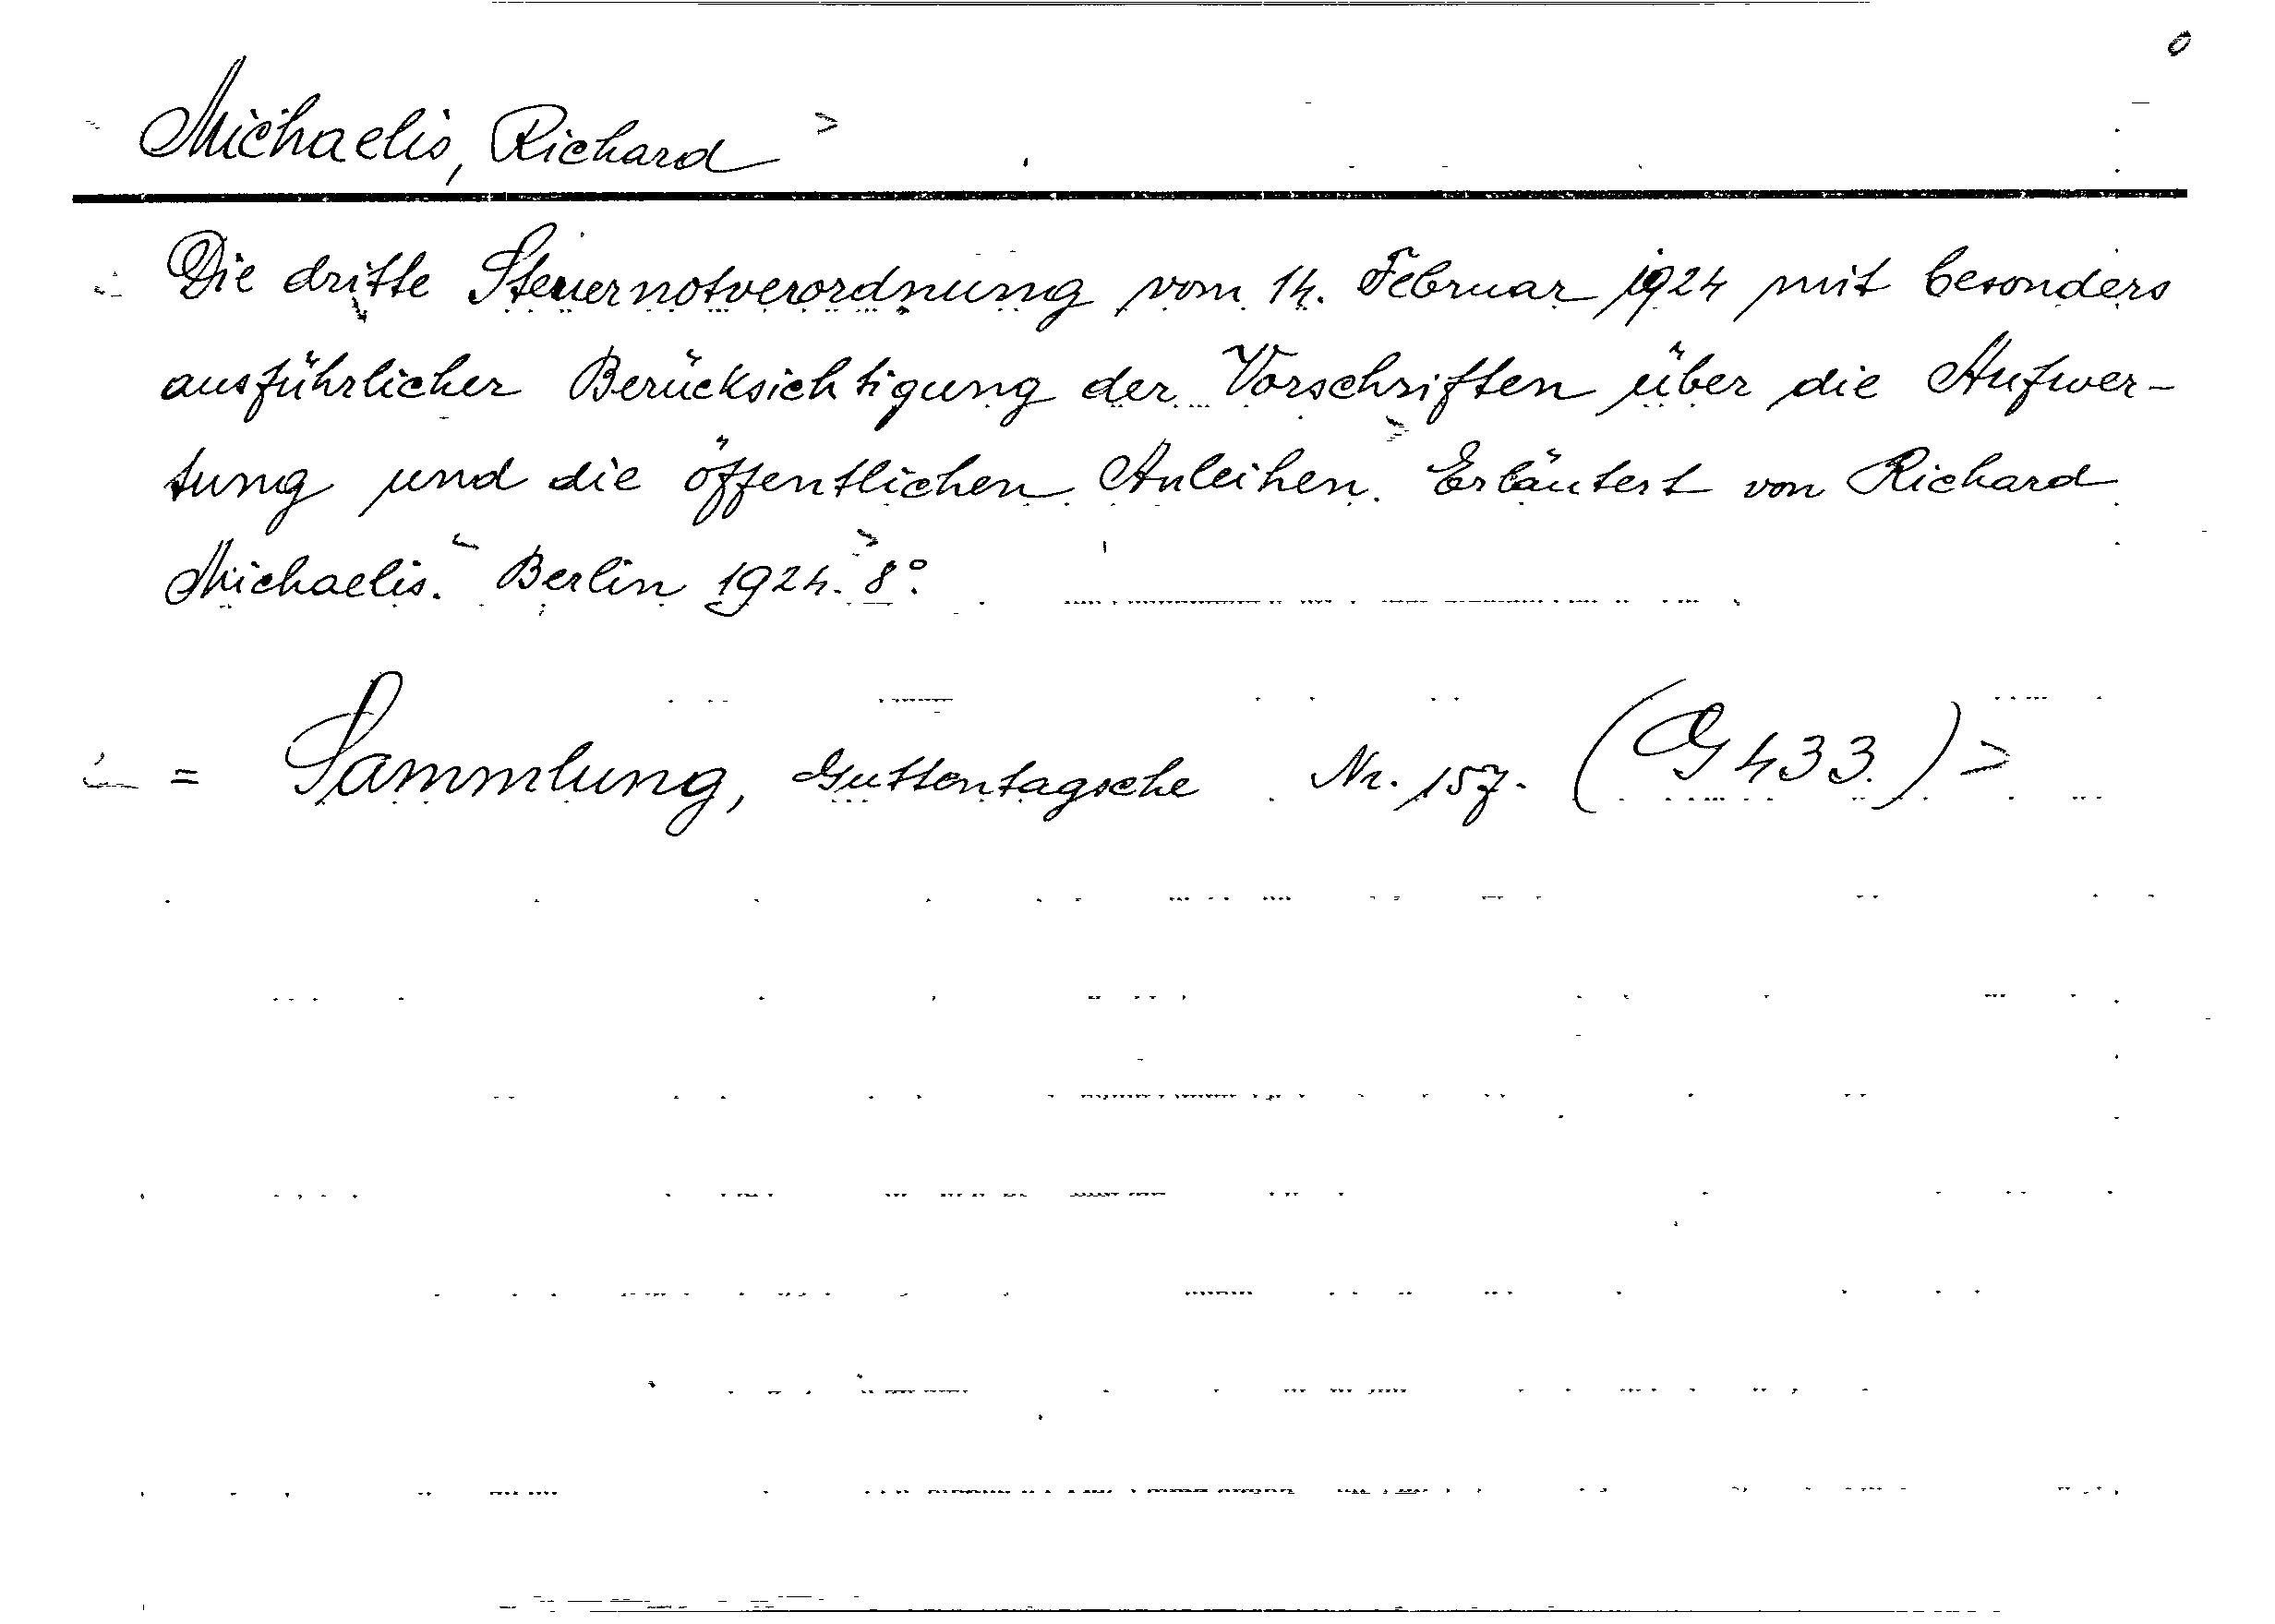 Michaelis, Richard
Die dritte Steuernotverordnung vom 14. Februar 1924 mit besonders
ausführlicher Berücksichtigung der Vorschriften über die Aufwer-
tung und die öffentlichen Anleihen. Erläutert von Richard
Michaelis. Berlin 1924. 8°.
= Sammlung, Guttentagsche Nr. 157. (G 433.)